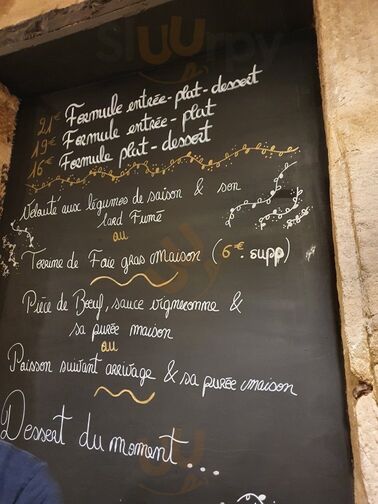 21€ Formule entrée-plat-dessert
19€ Formule entrée-plat
16€ Formule plat-dessert
Velouté aux légumes de saison & son
lard Fumé
ou
Terrine de Foie gras maison (6€ supp)
Pièce de Bœuf, sauce vigneronne &
sa purée maison
ou
Poisson suivant arrivage & sa purée maison
Dessert du moment...
Sluurpy